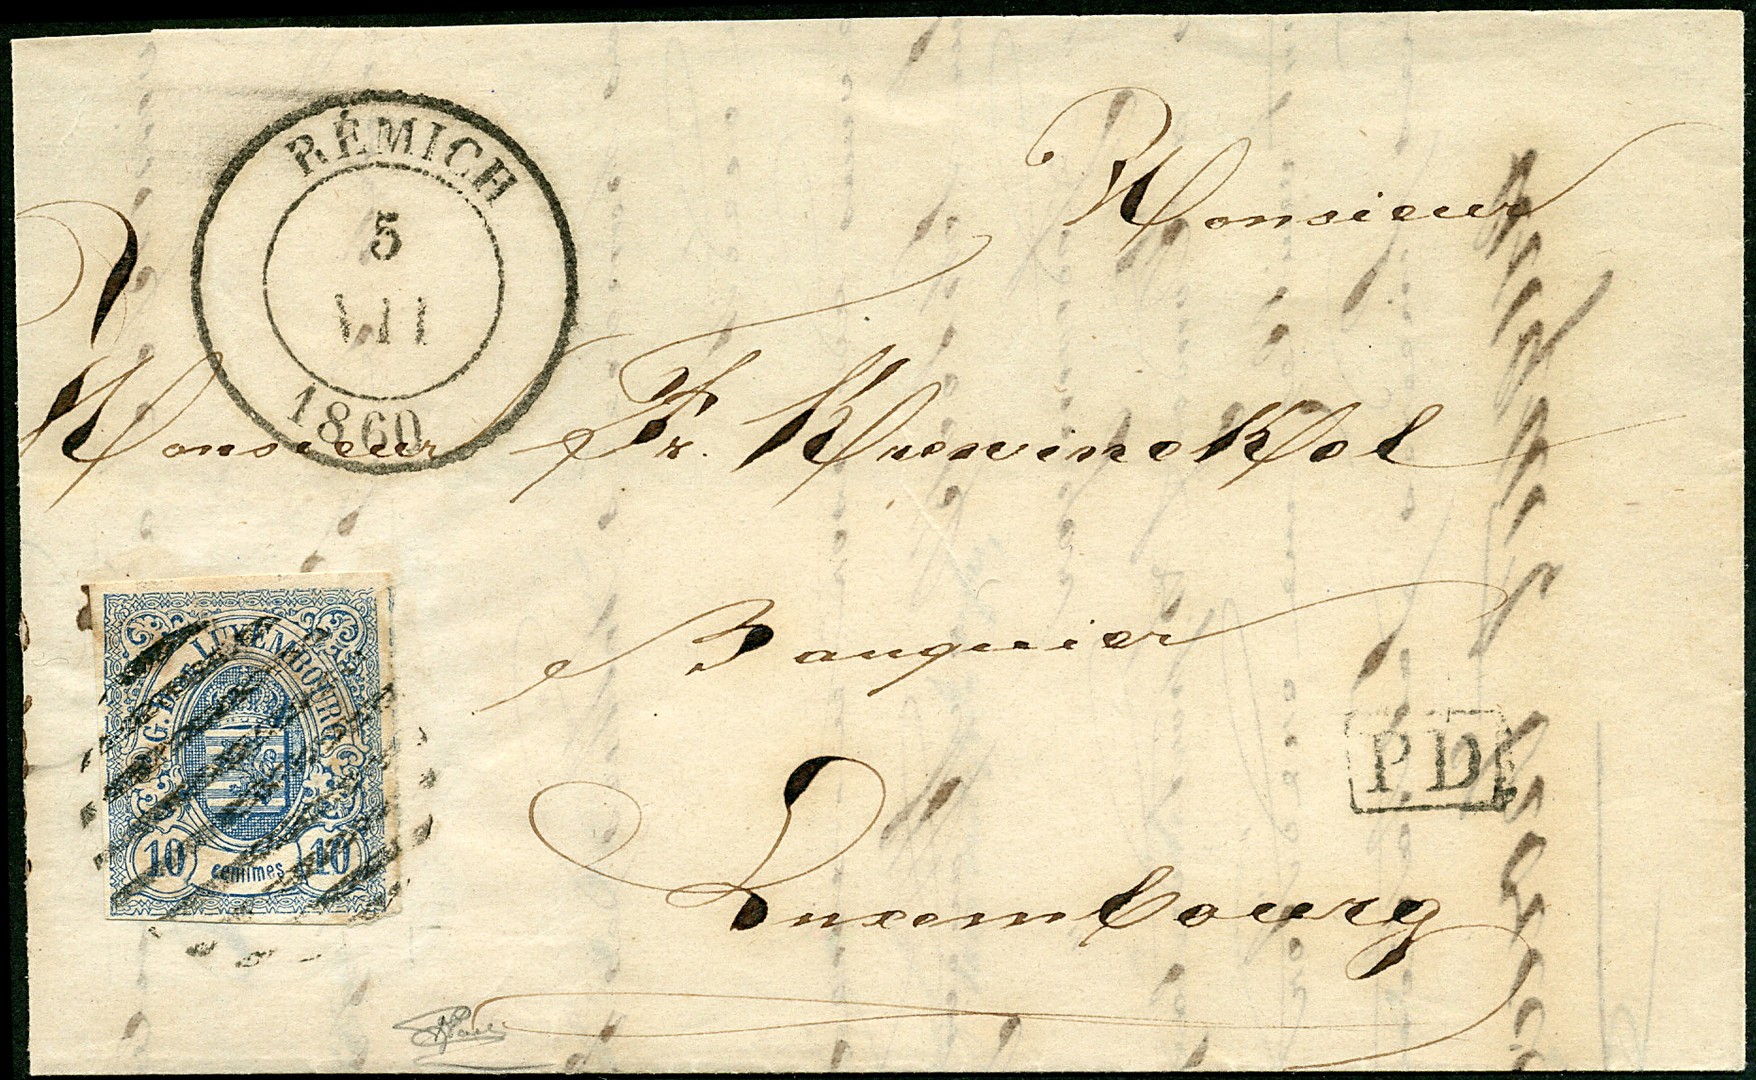 RÉMICH
5
VII
1860
Monsieur
Monsieur Fr. Krewinckel
Banquier
Luxembourg
PD
G. D. DE LUXEMBOURG
10 centimes 10